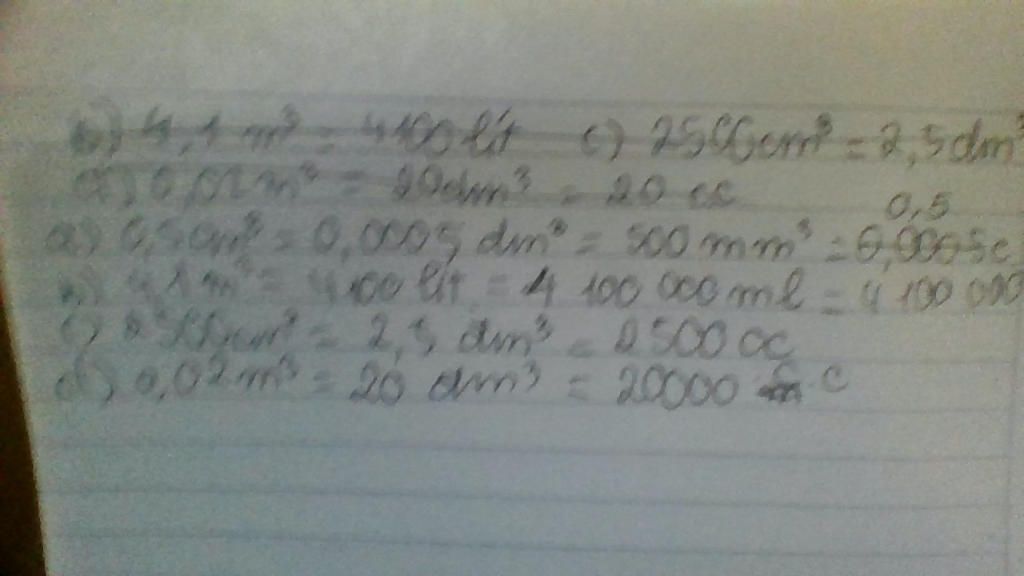 b) 4,1 m³ = 4100 lít c) 2500cm³ = 2,5dm³
d) 0,02m³ = 20dm³ = 20 cc
0,5
a) 0,5cm³ = 0,0005 dm³ = 500 mm³ = 0,0005c
b) 4,1 m³ = 4100 lít = 4 100 000 ml = 4 100 000
c) 2500cm³ = 2,5 dm³ = 2500 cc
d) 0,02m³ = 20 dm³ = 20000 c c